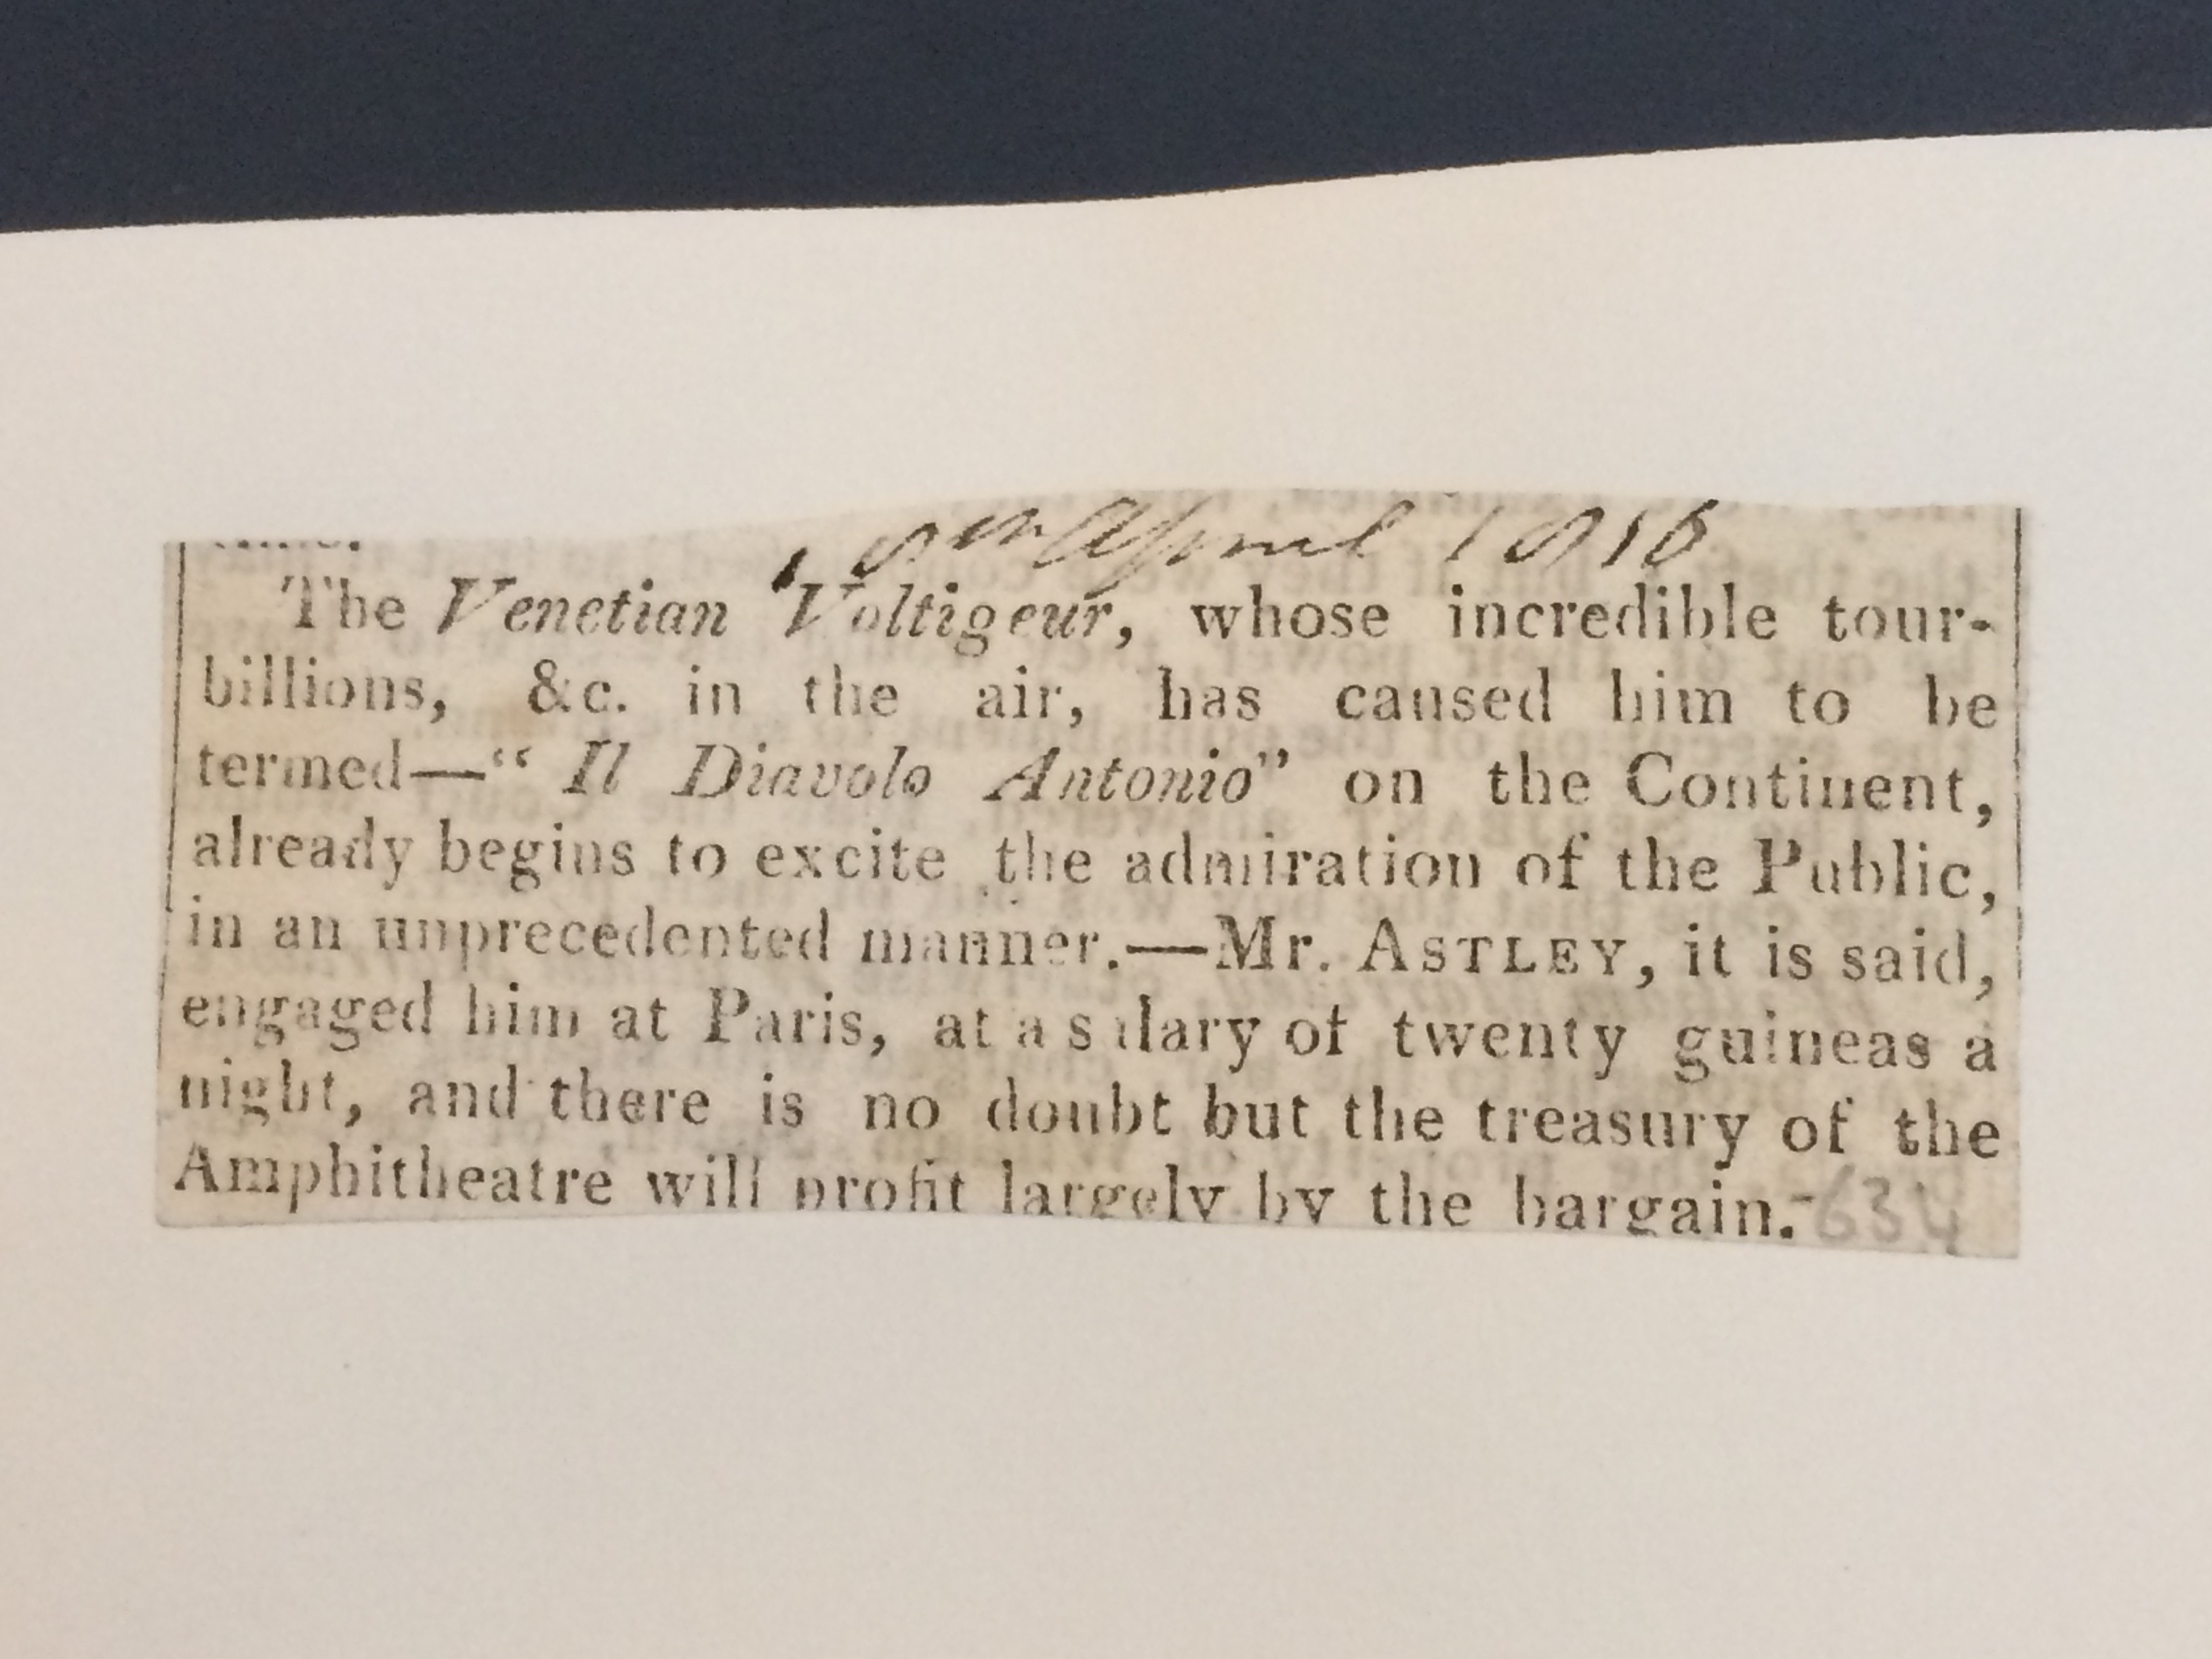 April 1816
The Venetian Voltigeur, whose incredible tour-
billions, &c. in the air, has caused him to be
termed—“ Il Diavolo Antonio” on the Continent,
already begins to excite the admiration of the Public,
in an unprecedented manner.—Mr. ASTLEY, it is said,
engaged him at Paris, at a salary of twenty guineas a
night, and there is no doubt but the treasury of the
Amphitheatre will profit largely by the bargain.-634